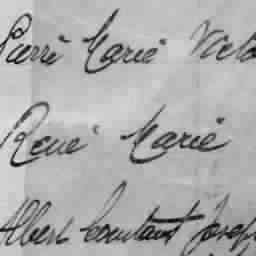 Pierre Marie Victo
René Marie
Albert Constant Joseph